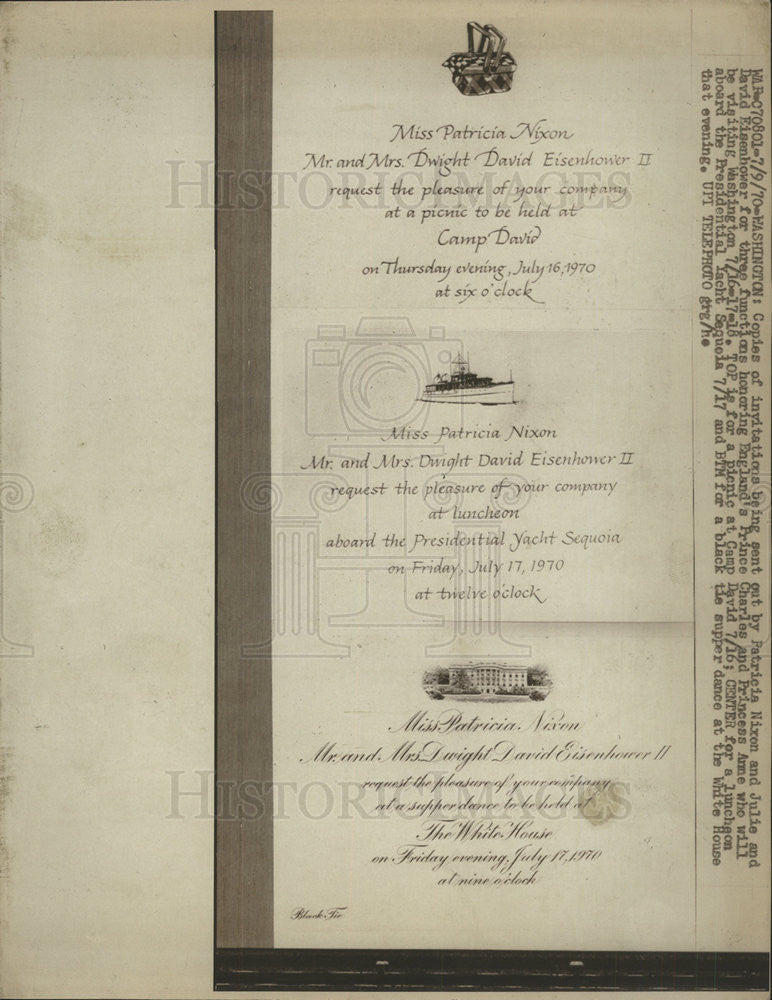 Miss Patricia Nixon
Mr. and Mrs. Dwight David Eisenhower II
request the pleasure of your company
at a picnic to be held at
Camp David
on Thursday evening, July 16, 1970
at six o'clock
Miss Patricia Nixon
Mr. and Mrs. Dwight David Eisenhower II
request the pleasure of your company
at luncheon
aboard the Presidential Yacht Sequoia
on Friday, July 17, 1970
at twelve o'clock
Miss Patricia Nixon
Mr. and Mrs. Dwight David Eisenhower II
request the pleasure of your company
at a supper dance to be held at
The White House
on Friday evening, July 17, 1970
at nine o'clock
Black Tie
WAP-C70801-7/9/70-WASHINGTON: Copies of invitations being sent out by Patricia Nixon and Julie and
David Eisenhower for three functions honoring England's Prince Charles and Princess Anne who will
be visiting Washington 7/16-17-18. TOP is for a picnic at Camp David 7/16; CENTER for a luncheon
aboard the Presidential Yacht Sequoia 7/17 and BTM for a black tie supper dance at the White House
that evening. UPI TELEPHOTO grg/he
HISTORICIMAGES
HISTORICIMAGES
HISTORICIMAGES